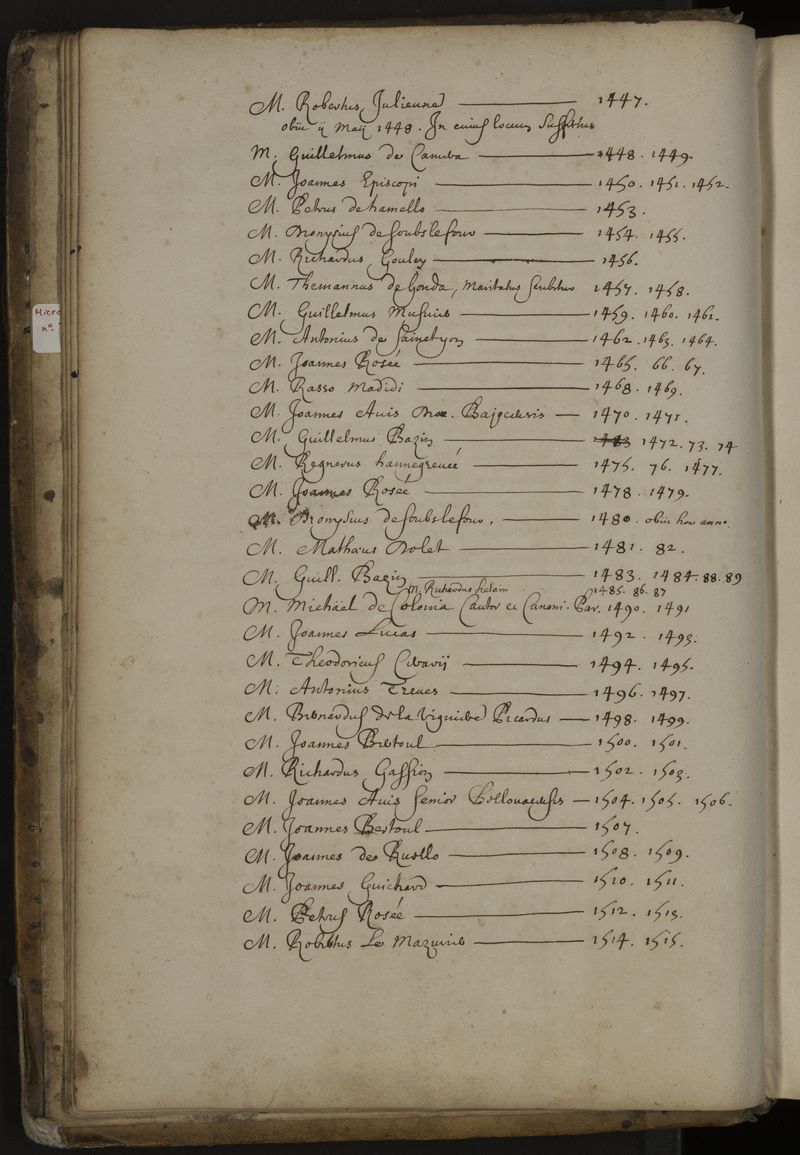 M. Robertus Julienne — 1447.
obiit ij Maij 1448. In cuius locum suffectus
M. Guillelmus de Camera — 1448. 1449.
M. Joannes Episcopi — 1450. 1451. 1452.
M. Petrus de hamello — 1453.
M. Dionysius de soubslefour — 1454. 1455.
M. Richardus Gouley — 1456.
M. Themannus de Gonda, Maritatus 1457. 1458.
M. Guillelmus — 1459. 1460. 1461.
M. Antonius de Sainctyon — 1462. 1463. 1464.
M. Joannes Rosée — 1465. 66. 67.
M. Rasso Madidi — 1468. 1469.
M. Joannes Avis — 1470. 1471.
M. Guillelmus Bazin — 1472. 73. 74
M. Regnerus hannegreuée — 1475. 76. 1477.
M. Joannes Rosée — 1478. 1479.
M. Dionysius de soubslefour. — 1480. obiit hoc anno.
M. Mathæus Dolet — 1481. 82.
M. Guill. Bazin — 1483. 1484. 88. 89
M. Richardus helain 1485. 86. 87
M. Michäel de Colonia Cantor et Canoni. Par. 1490. 1491
M. Joannes Lucas — 1492. 1493.
M. Theodoricus — 1494. 1495.
M. Antonius Treues — 1496. 1497.
M. Bernardus de la Vignuere Picardus — 1498. 1499.
M. Joannes Bertoul — 1500. 1501.
M. Richardus Gassion — 1502. 1503.
M. Joannes Avis senior Bellouacensis — 1504. 1505. 1506.
M. Joannes Bertoul — 1507.
M. Joannes des Ruello — 1508. 1509.
M. Joannes Guichard — 1510. 1511.
M. Petrus Rosée — 1512. 1513.
M. Robertus Le Mazurier — 1514. 1515.